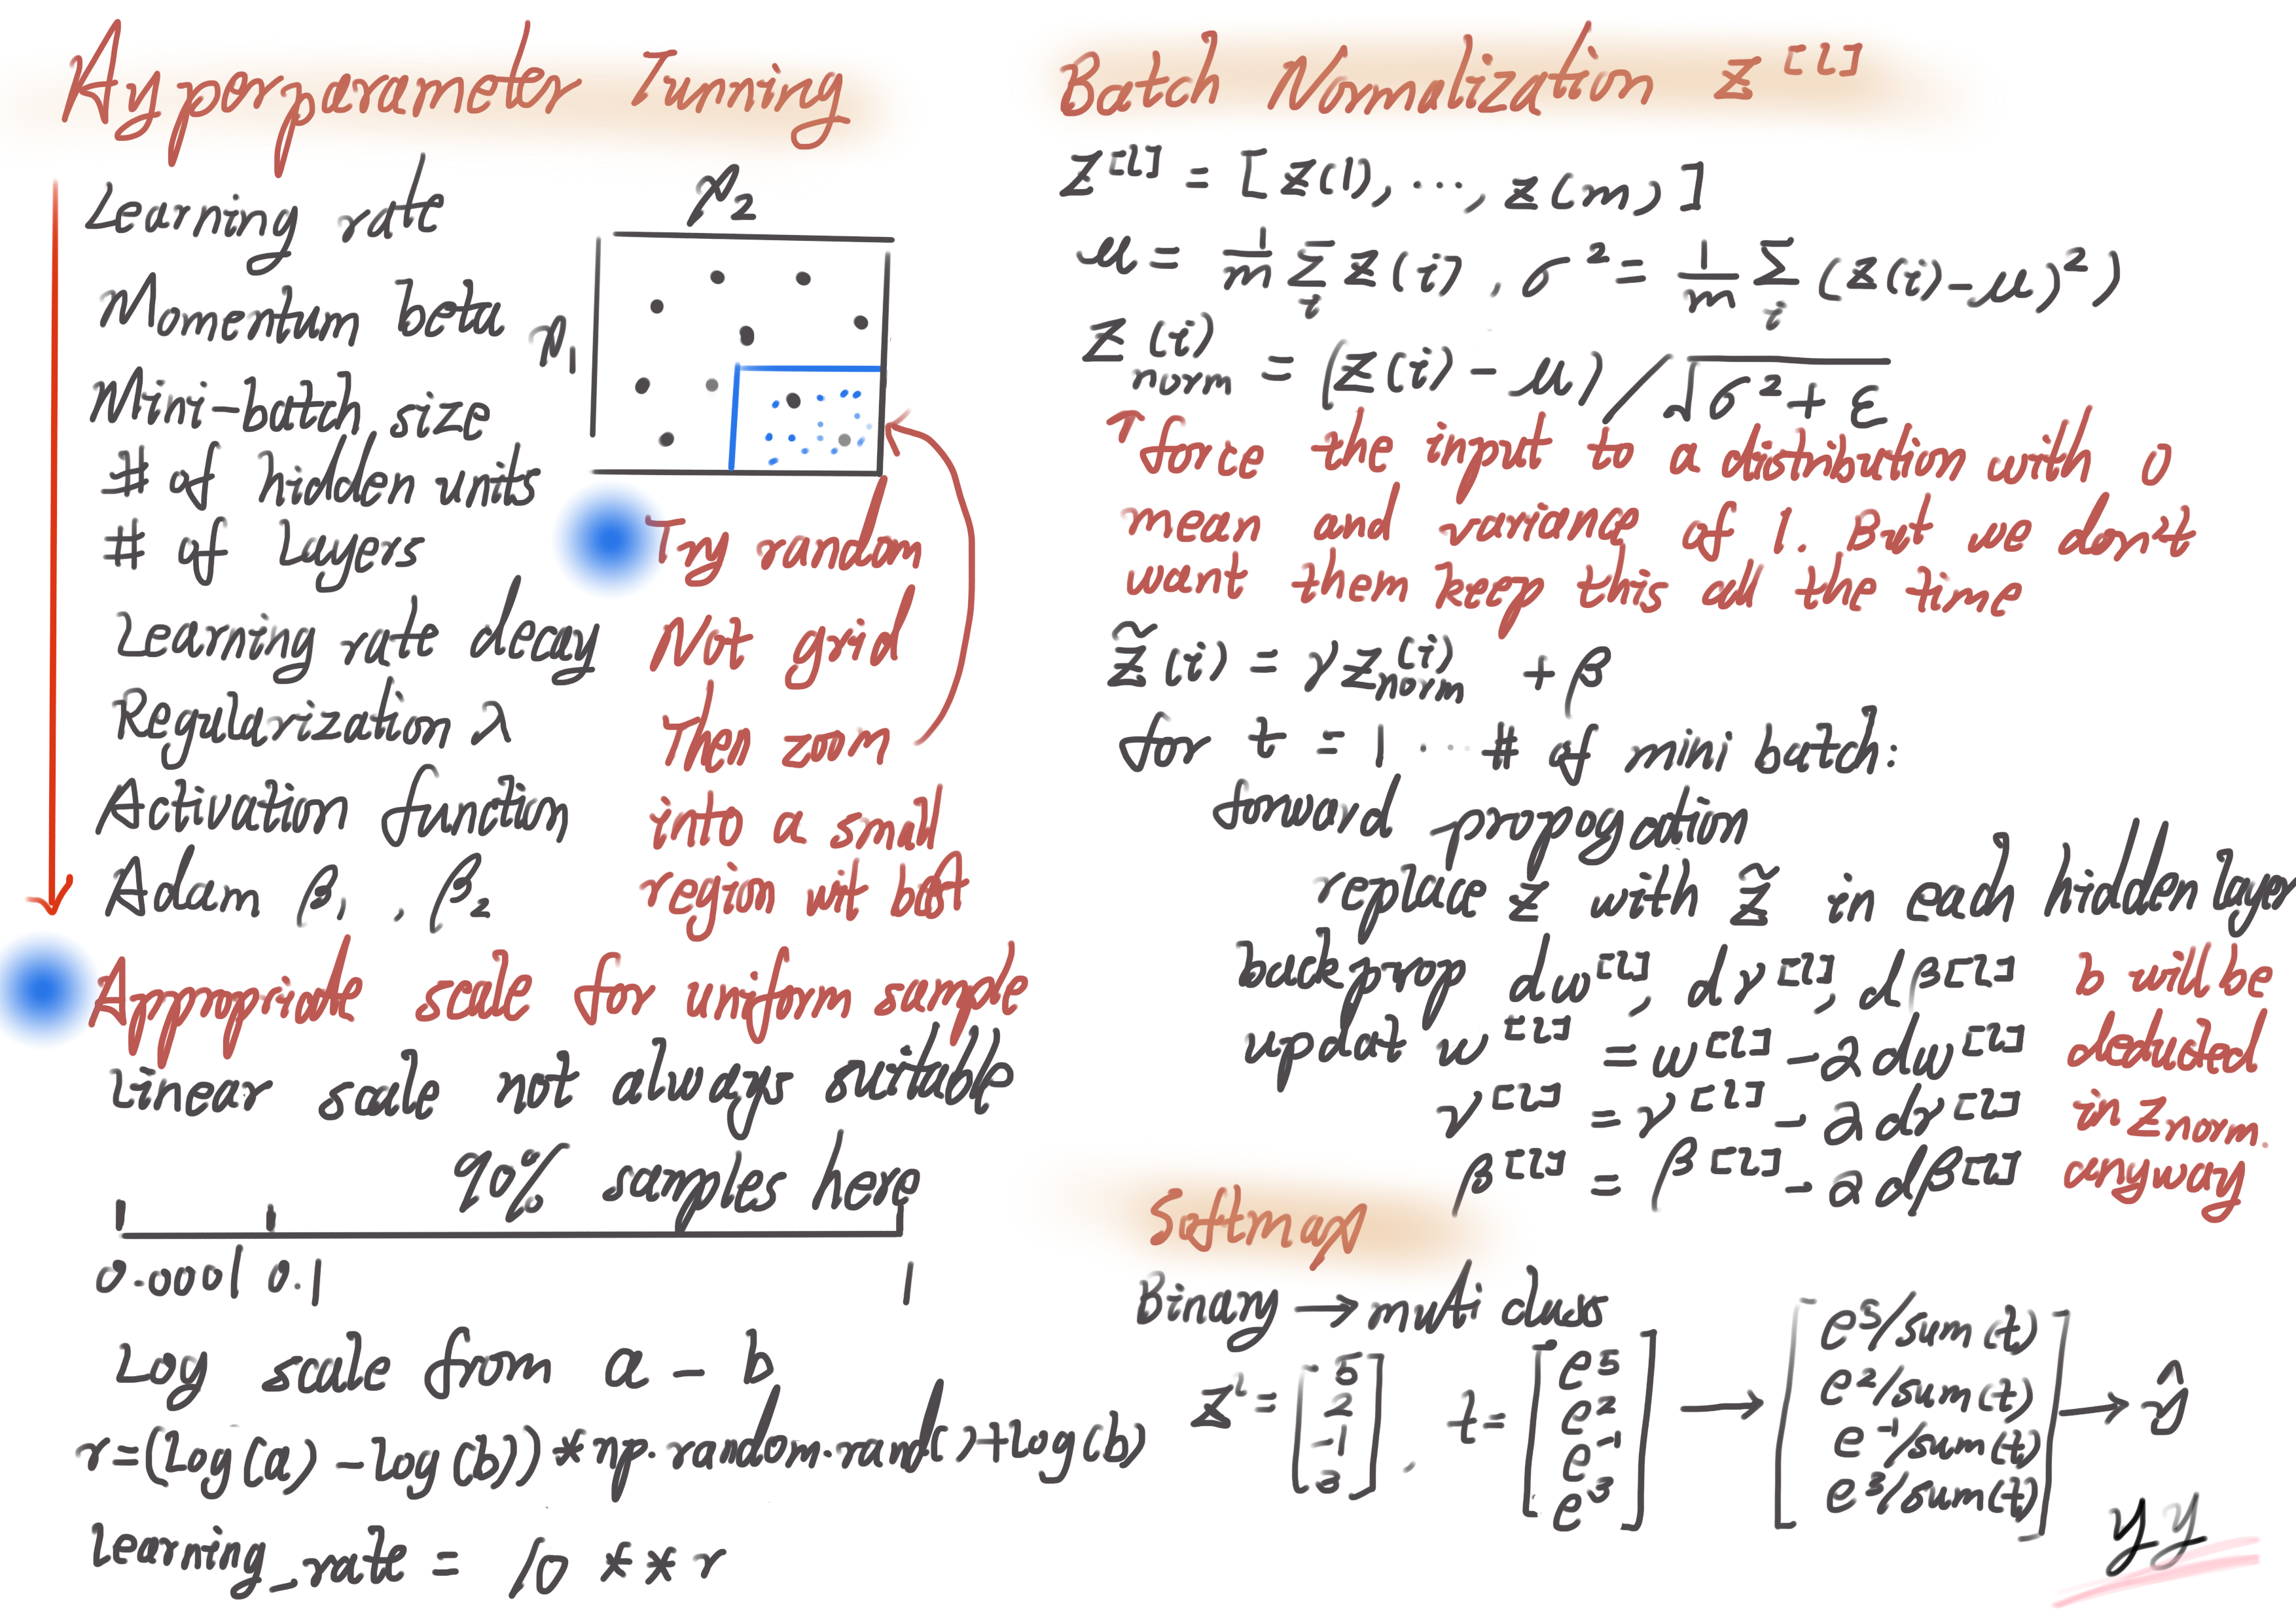 Hyperparameter Tunning
Learning rate
Momentum beta
Mini-batch size
# of hidden units
# of Layers
Learning rate decay
Regularization λ
Activation function
Adam β₁ , β₂
p₂
p₁
Try random
Not grid
Then zoom
into a small
region wit best
Appropriate scale for uniform sample
Linear scale not always suitable
90% samples here
0.0001 0.1 1
Log scale from a - b
r=(Log(a) -log(b)) * np.random.rand()+log(b)
learning_rate = 10 ** r
Batch Normalization z^[l]
z^[l] = [z(1), ..., z(m)]
μ = 1/m Σ_i z(i) , σ² = 1/m Σ_i (z(i)-μ)²)
z_norm^(i) = (z(i) - μ) / √σ² + ε
↑ force the input to a distribution with 0
mean and variance of 1. But we don't
want them keep this all the time
z̃(i) = γ z_norm^(i) + β
for t = 1 ... # of mini batch:
forward propogation
replace z with z̃ in each hidden layer
back prop dw^[l], dγ^[l], dβ^[l]
updat w^[l] = w^[l] - α dw^[l]
γ^[l] = γ^[l] - α dγ^[l]
β^[l] = β^[l] - α dβ^[l]
b will be
deducted
in z_norm.
anyway
Softmax
Binary → muti class
z^l = [5 2 -1 3] , t = [e^5 e^2 e^-1 e^3] → [e^5/sum(t) e^2/sum(t) e^-1/sum(t) e^3/sum(t)] → ŷ
yy